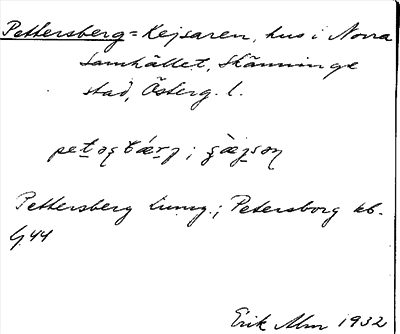 Pettersberg = Kejsaren, hus i Norra
Samhället, Skänninge
stad, Österg. l.
Pettersberg ; Petersborg kb.
44
Erik Alm 1932